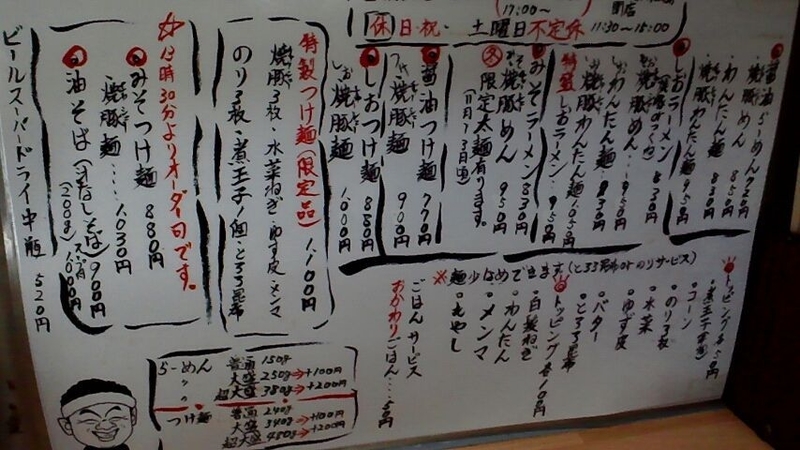 (17:00〜
閉店
休 日・祝・ 土曜日不定休 11:30〜15:00)
醤油らーめん
・焼豚めん 850円
・わんたん麺 830円
・焼豚わんたん麺 950円
しおラーメン
焼豚めん 950円
わんたん麺 930円
焼豚わんたん麺 1,050円
特製しおラーメン 950円
みそラーメン 830円
焼豚めん 950円
冬 限定太麺有ります。
醤油つけ麺 770円
焼豚麺 900円
しおつけ麺 880円
焼豚麺 1,000円
特製つけ麺(限定品) 1,100円
焼豚3枚・水菜ねぎ・ゆず皮・メンマ
のり3枚・煮玉子1個・とろろ昆布
13時30分よりオーダー可です。
みそつけ麺 880円
焼豚麺…… 1,030円
油そば (汁なしそば) 900円
ビールスーパードライ中瓶 520円
トッピング各50円
・煮玉子
・コーン
・のり3枚
・水菜
・ゆず皮
・バター
・とろろ昆布
トッピング各10円
・白髪ねぎ
・わんたん
・メンマ
・もやし
※麺少なめでできます(とろろ昆布orのりサービス)
ごはんサービス
おかわりごはん…50円
らーめん 普通 150g
〃 大盛 250g→+100円
〃 超大盛 380g→+200円
つけ麺 普通 240g
大盛 340g→+100円
超大盛 480g→+200円